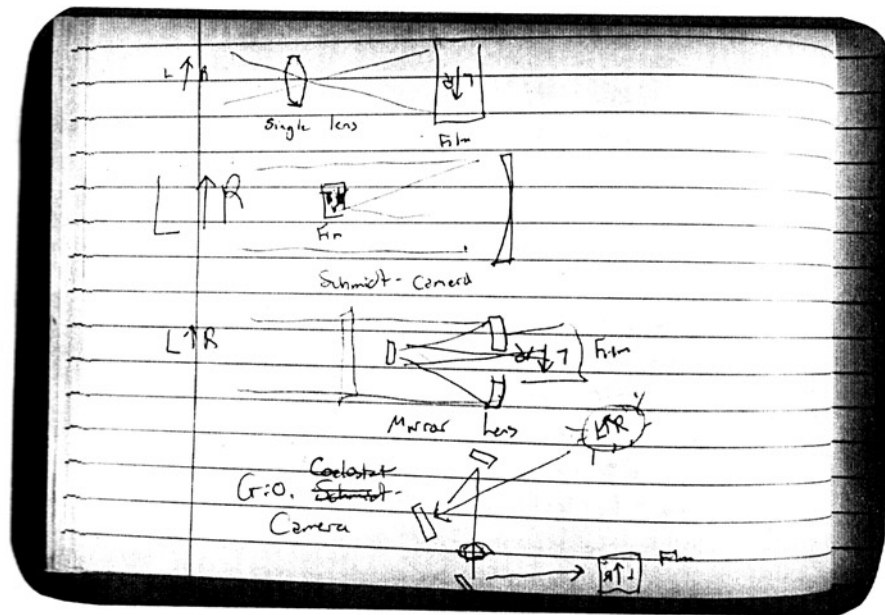 L ↑ R
Single lens
Film
L ↑ R
Film
Schmidt-Camera
L ↑ R
L
Film
Mirror Lens
L ↑ R
Coelostat
G.O. Schmidt-
Camera
Film